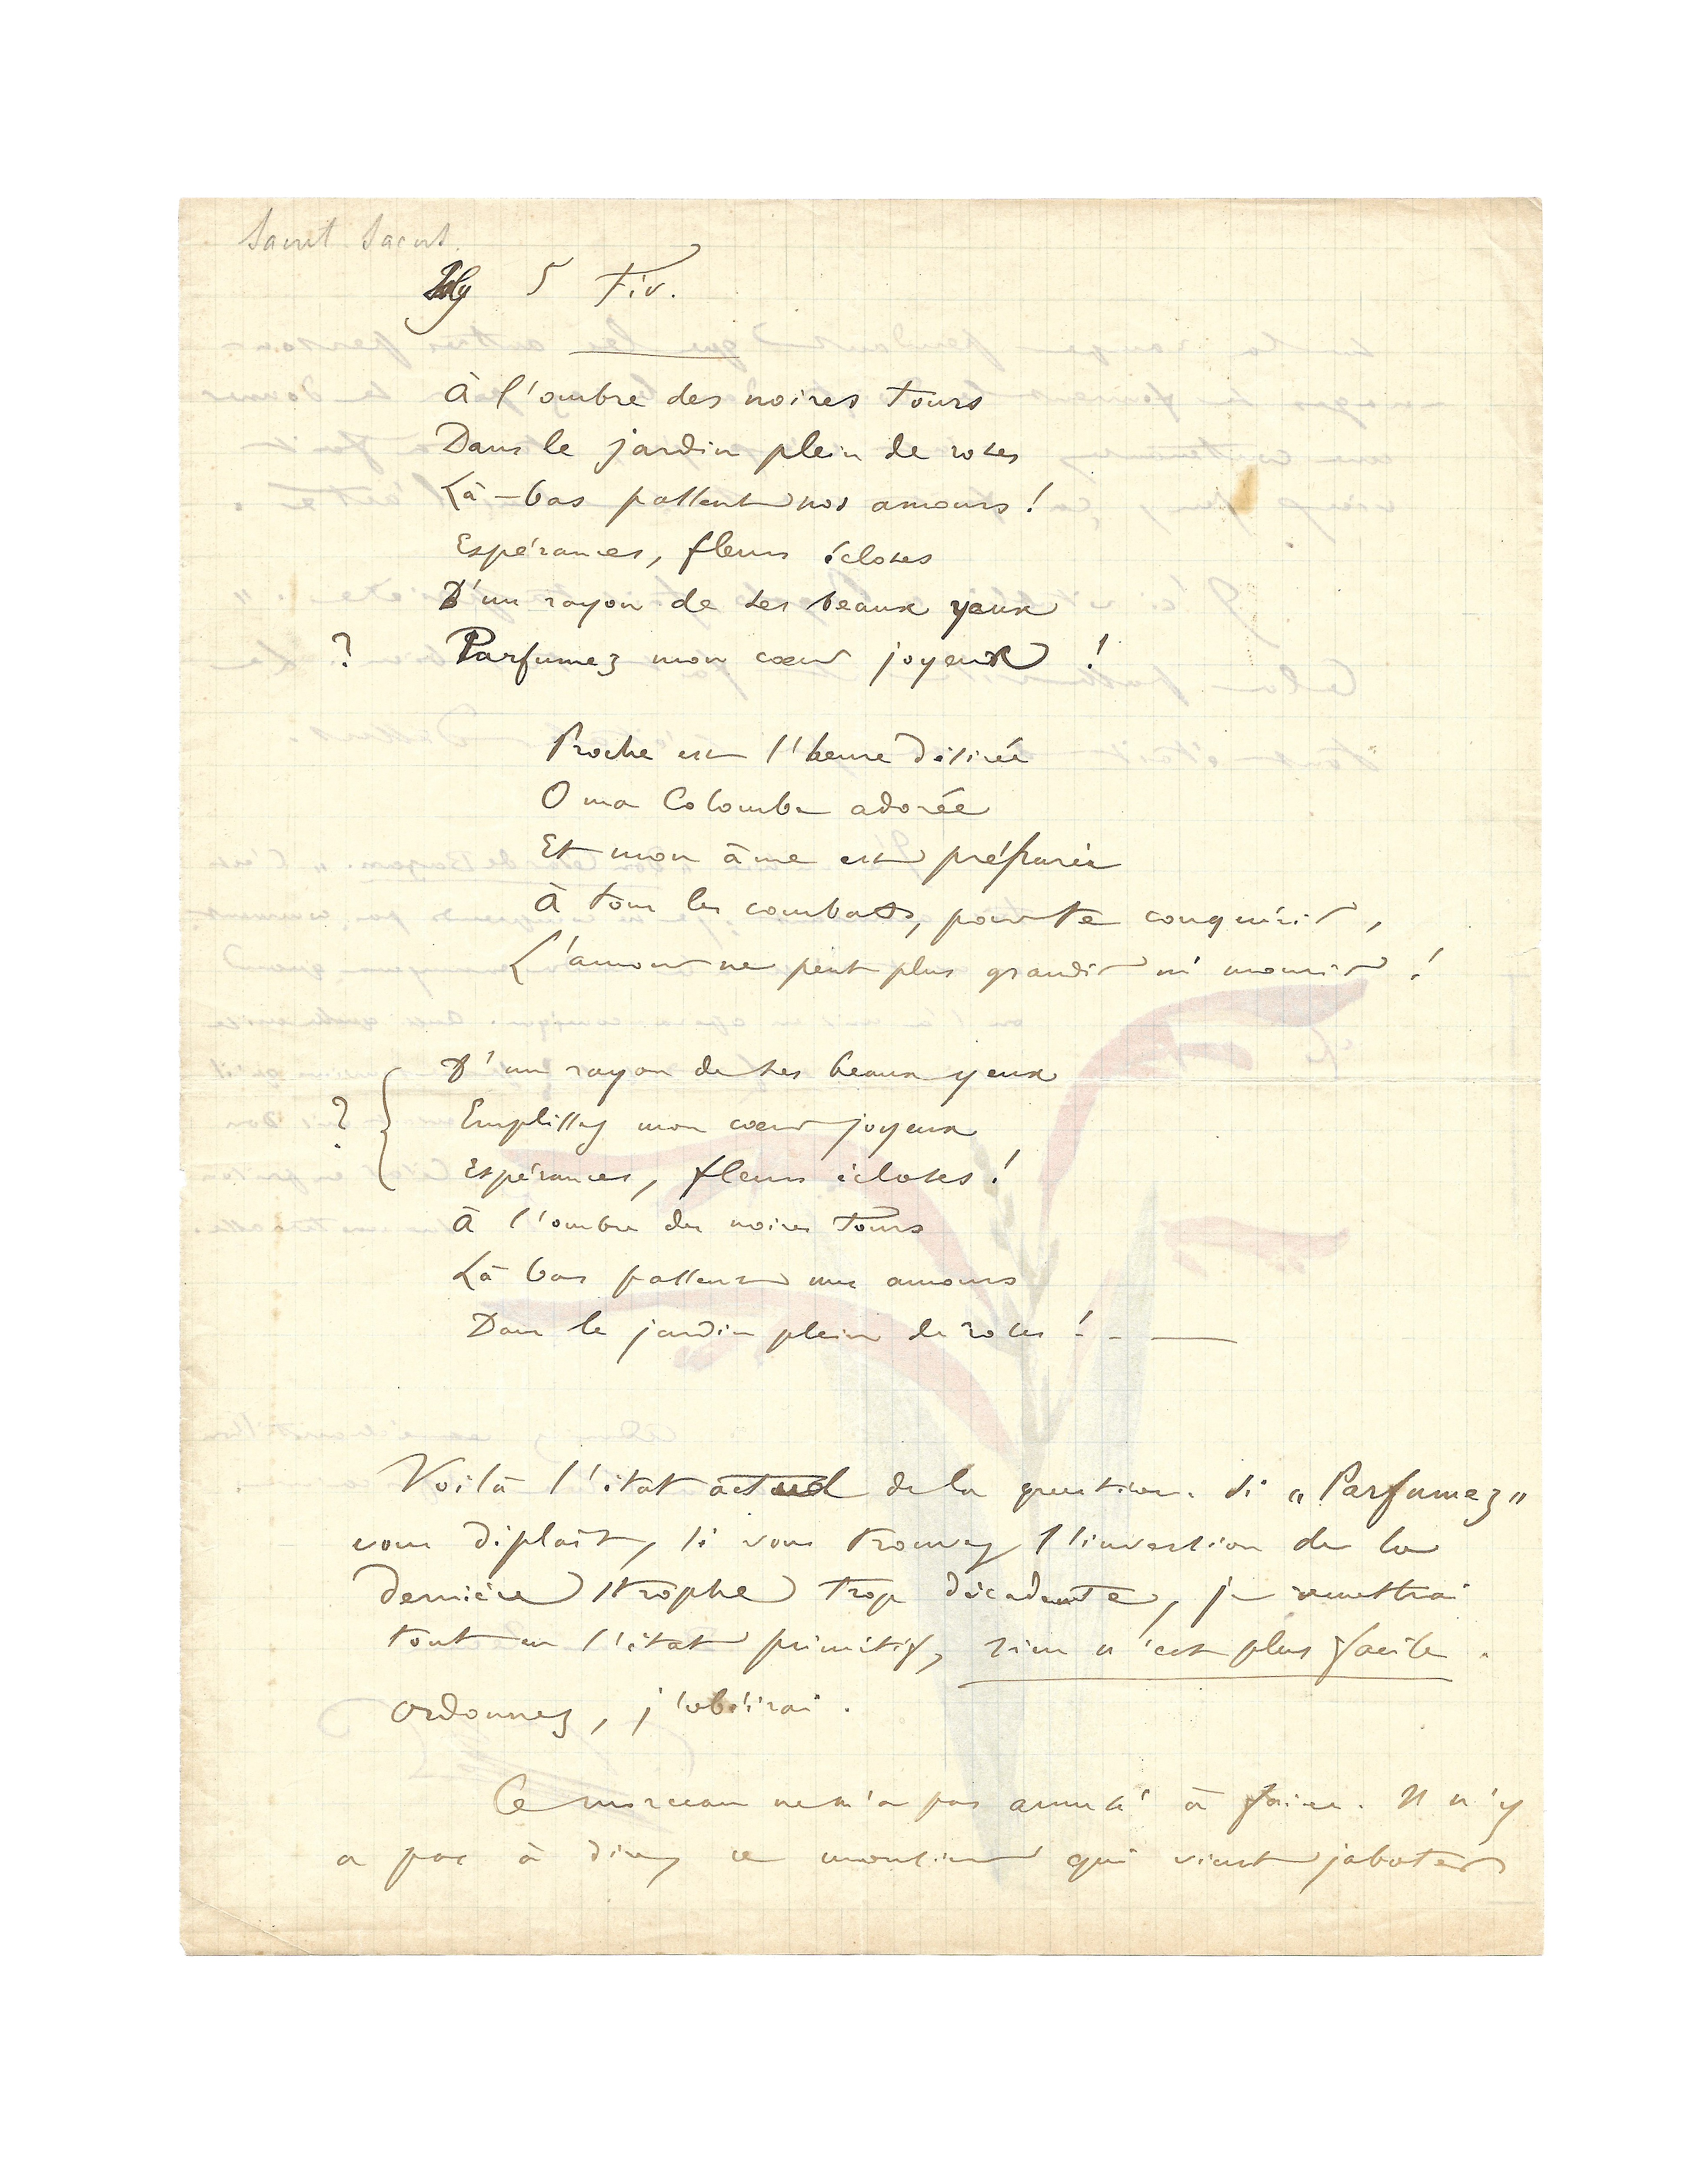 Saint Saens.
5 Fév.
À l'ombre des noires tours
Dans le jardin plein de roses
Là-bas passent nos amours !
Espérances, fleurs écloses
D'un rayon de ses beaux yeux
? Parfumez mon cœur joyeux !
Proche est l'heure désirée
O ma Colombe adorée
Et mon âme est préparée
À tous les combats, pour te conquérir,
L'amour ne peut plus grandir ni mourir !
D'un rayon de ses beaux yeux
? Emplissez mon cœur joyeux
Espérances, fleurs écloses !
À l'ombre des noires tours
Là bas passent nos amours
Dans le jardin plein de roses !
Voilà l'état actuel de la question. Si „Parfumez"
vous déplaît, si vous trouvez l'inversion de la
dernière strophe trop décadente, je remettrai
tout en l'état primitif, rien n'est plus facile.
Ordonnez, j'obéirai.
Ce morceau ne m'a pas amusé à faire. Il n'y
a pas à dire, ce monsieur qui vient jaboter